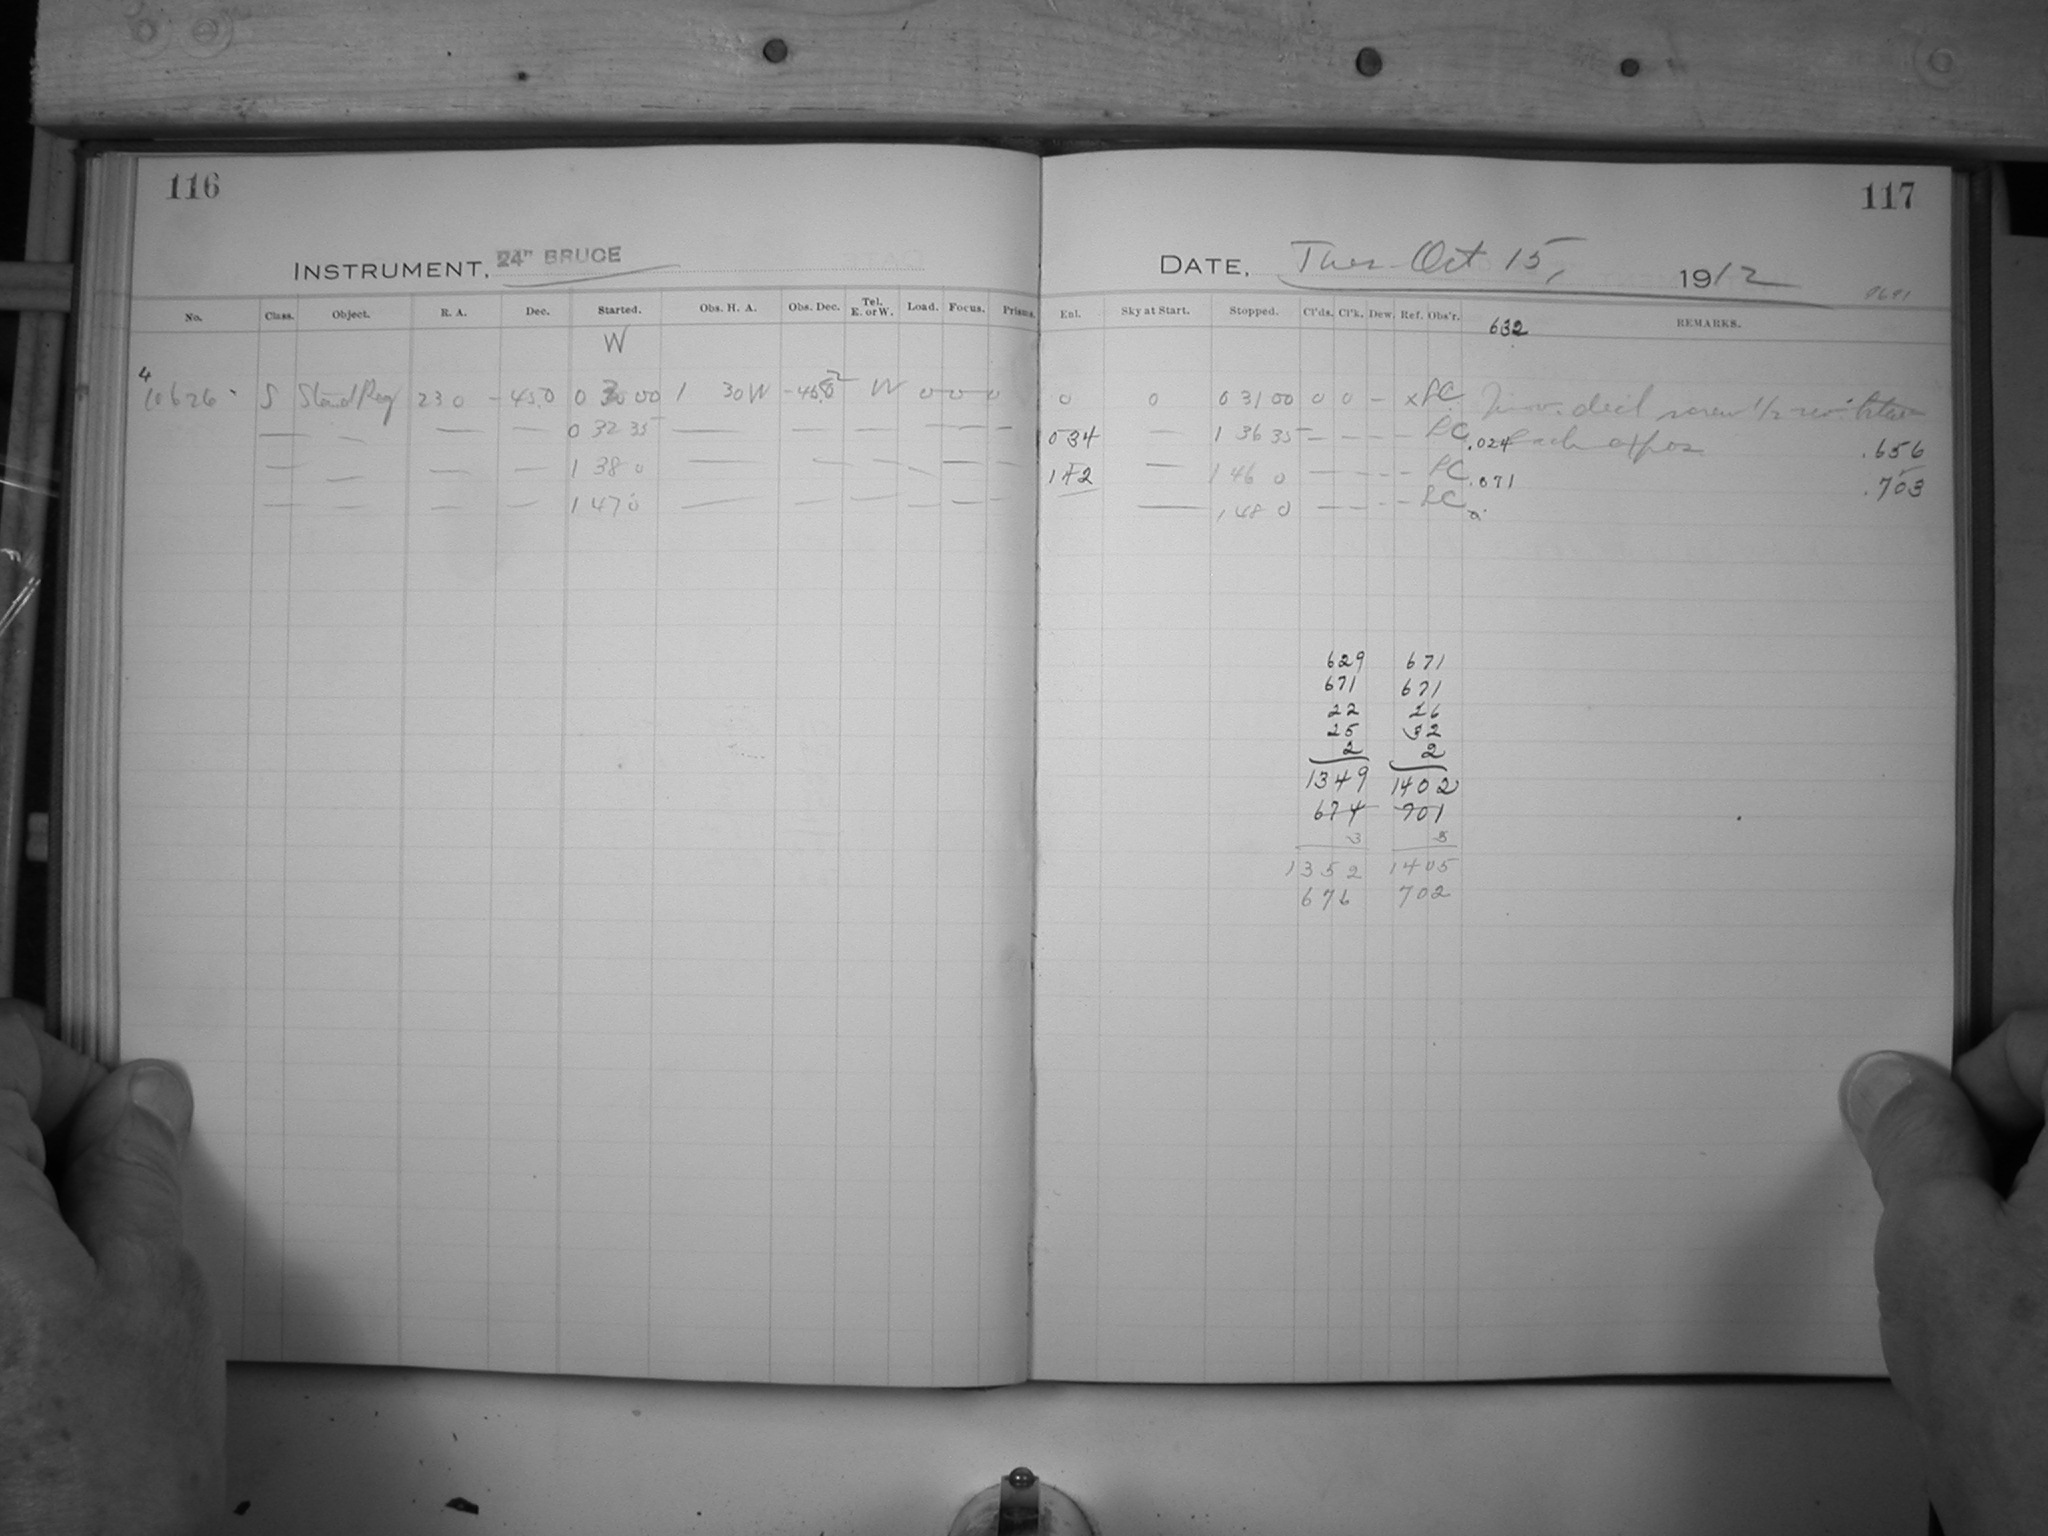 116
INSTRUMENT, 24" BRUCE
No. Class. Object. R. A. Dec. Started. Obs. H. A. Obs. Dec. Tel. E. or W. Load. Focus. Prisms.
W
4
10626 S Stand Reg 23 0 - 45.0 0 30 00 1 30 W - 45.0 W 0 0 0
— — — — 0 32 35 — — — — — —
— — — — 1 38 0 — — — — — —
— — — — 1 47 0 — — — — — —
117
DATE, Tues Oct 15, 1912
Enl. Sky at Start. Stopped. Cl'ds. Cl'k. Dew. Ref. Obs'r. REMARKS.
632
0 0 0 31 00 0 0 - x LC decl screw 1/2 rev.
034 — 1 36 35 — — — — LC .024 each expos .656
1 — 1 46 0 — — — — LC .071 .703
— 1 48 0 — — — — LC
629 671
671 671
22 26
25 32
2 2
1349 1402
674 701
3 3
1352 1405
676 702